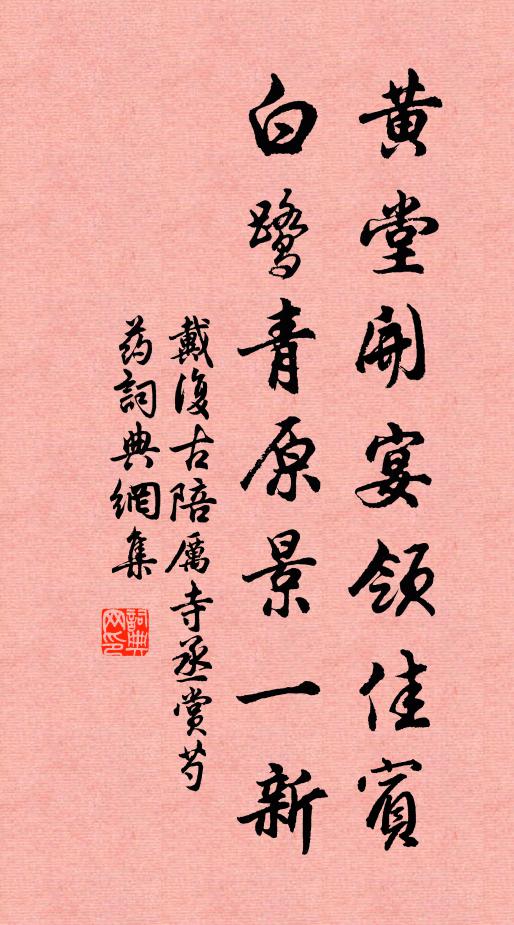 黄堂開宴領佳賓
白鹭青原景一新
戴復古陪厲寺丞賞芍
药詞典網集
詞典网印